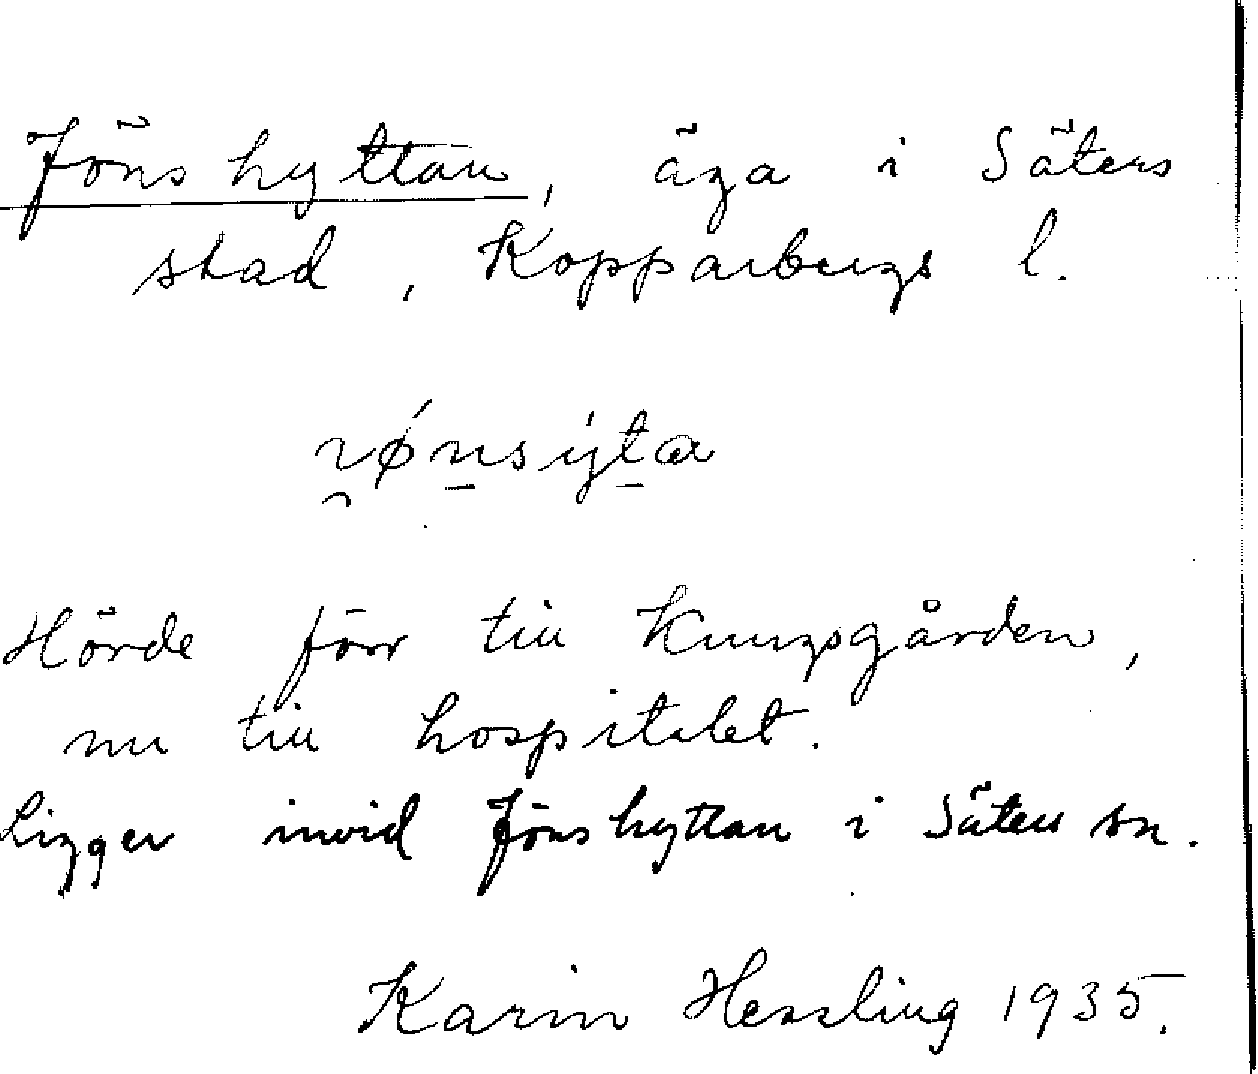 Jönshyttan, äga i Säters
stad, Kopparbergs l.
Hörde förr till Kungsgården,
nu till hospitalet.
Ligger invid Jönshyttan i Säters sn.
Karin Hessling 1935.